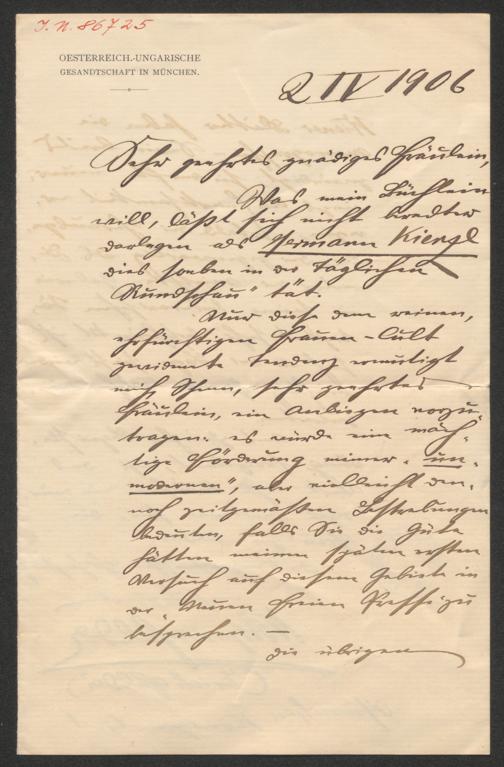 I. N. 86725
OESTERREICH.-UNGARISCHE
GESANDTSCHAFT IN MÜNCHEN.
2 IV 1906
Sehr geehrtes gnädiges Fräulein,
Was mein Büchlein
will, läßt sich nicht beredter
darlegen als Hermann Kienzl
dies soeben in der Täglichen
Rundschau" tat.
Nur diese dem reinen,
ehrfürchtigen Frauen-Cult
gewidmete Tendenz ermutigt
mich, Ihnen, sehr geehrtes
Fräulein, ein Anliegen vorzu-
tragen: es würde eine mäch-
tige Förderung meiner „un-
modernen", aber vielleicht den-
noch zeitgemäßen Bestrebungen
bedeuten, falls Sie die Güte
hätten meinen späten ersten
Versuch auf diesem Gebiete in
der „Neuen Freien Presse" zu
besprechen. —
Die übrigen